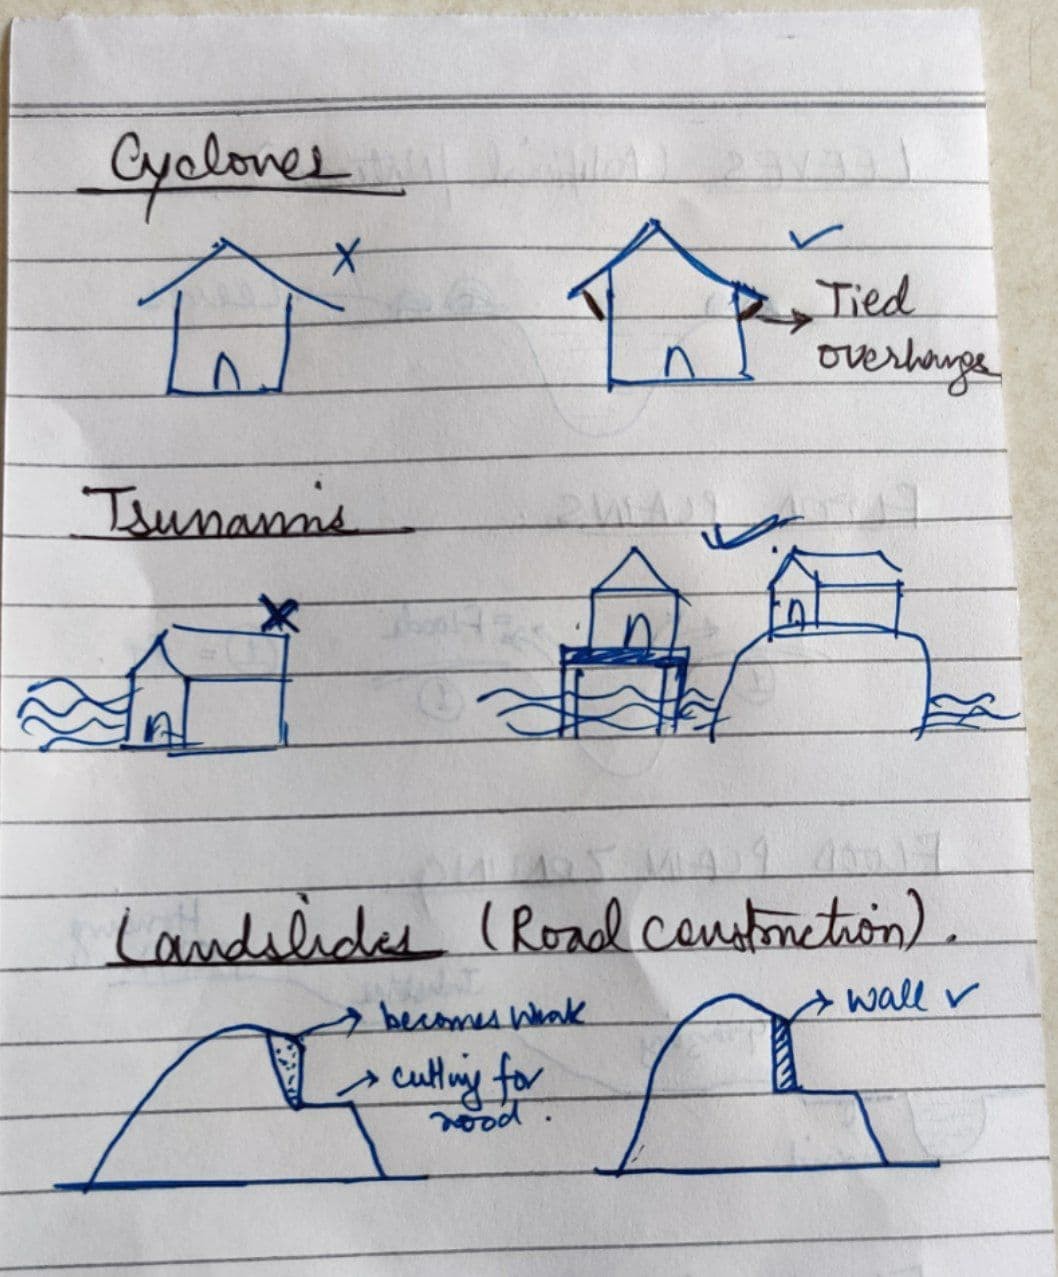 Cyclones
X
✓
Tied
overhangs
Tsunamis
X
✓
Landslides (Road construction).
becomes weak
cutting for
wall ✓